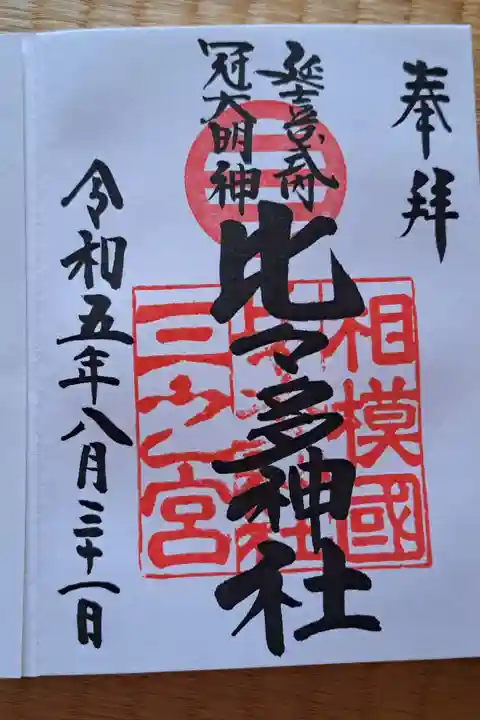 奉拝
延喜式内
冠大明神
比々多神社
相模國
三之宮
令和五年八月三十一日